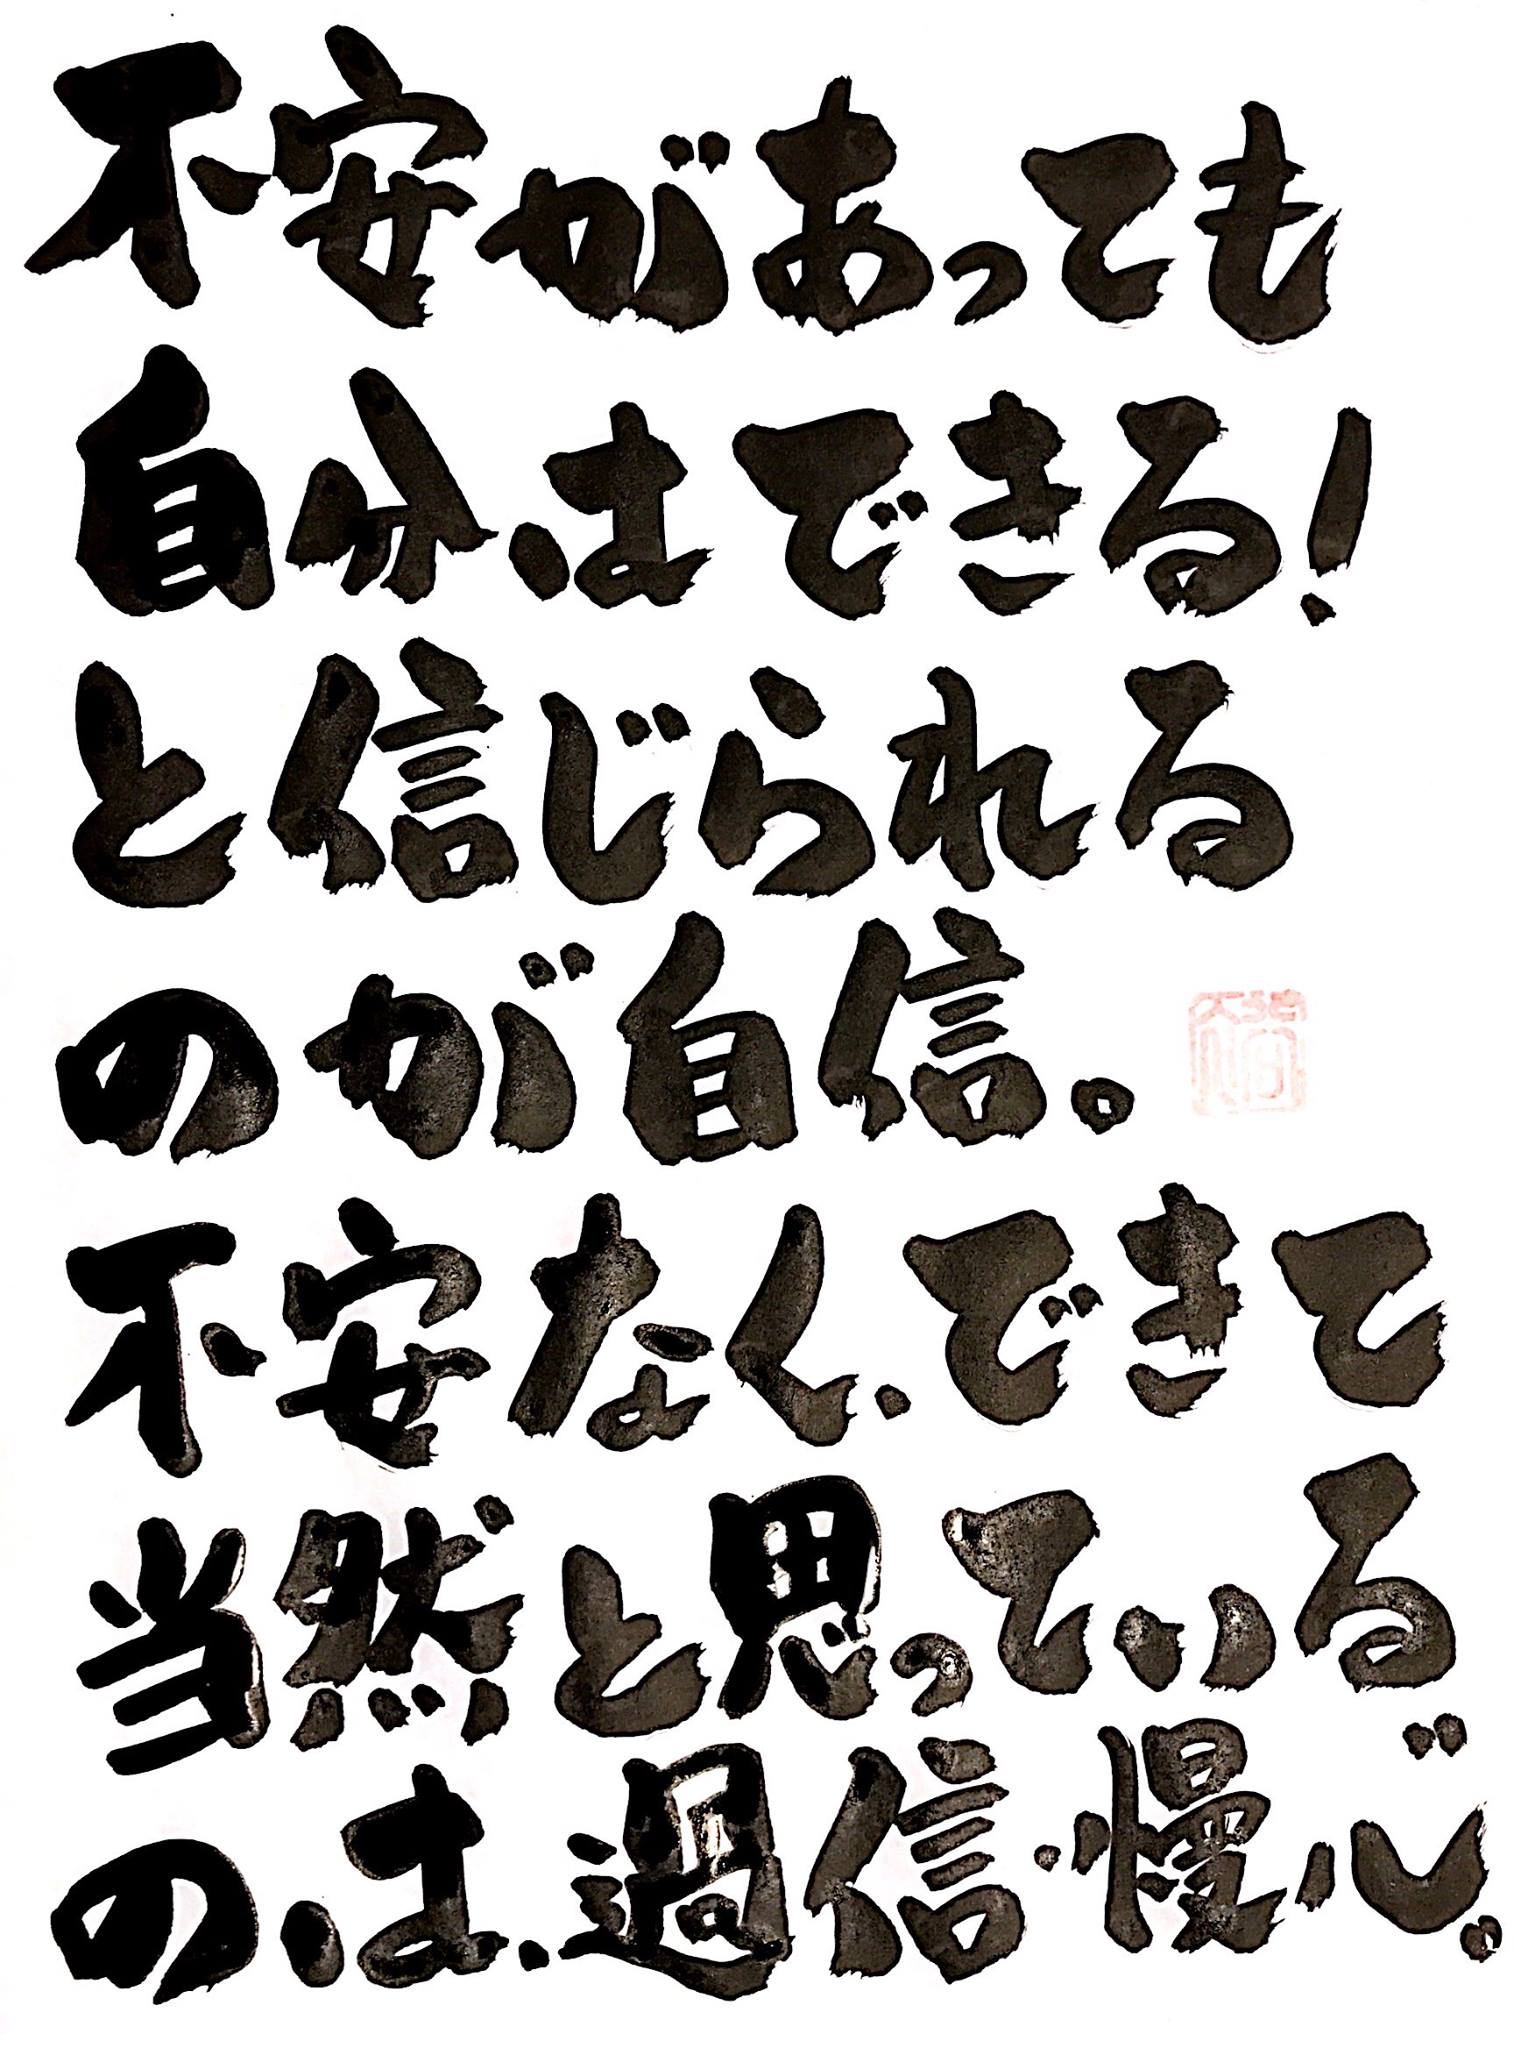 不安があっても
自分はできる!
と信じられる
のが自信。
不安なく、できて
当然と思っている
のは、過信・慢心。